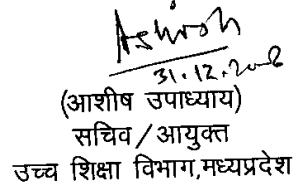 Ashish
31.12.2008
(आशीष उपाध्याय)
सचिव/आयुक्त
उच्च शिक्षा विभाग,मध्यप्रदेश